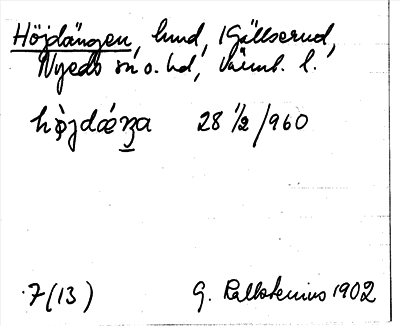 Höjdängen, lund, Kjällserud,
Nyeds sn o. hd, Värml. l.
hö̀jdæŋa 28 1/2 /960
7 (13) G. Kallstenius 1902